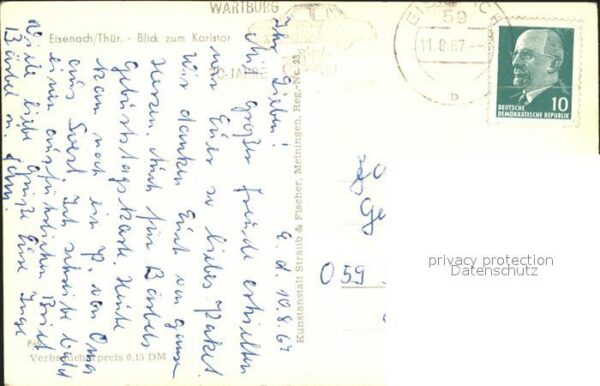 WARTBURG
10 JAHRE
EISENACH
59
11.8.67.--
b
DEUTSCHE
DEMOKRATISCHE REPUBLIK
10
Eisenach/Thür. - Blick zum Karlstor
E. d. 10.8.67
Ihr Lieben!
Mit großer Freude erhielten
wir Euer so liebes Paket.
Wir danken Euch von ganzem
Herzen. Auch für Bärbels
Geburtstagskarte. Heute
kam noch ein P. von Oma
aus Soest. Ich schreibe bald
einen ausführlichen Brief.
Viele liebe Grüße Eure Inge
Bärbel u.
Kunstanstalt Straub & Fischer, Meiningen, Reg.-Nr.
Verbraucherpreis 0,15 DM
O 59
privacy protection
Datenschutz